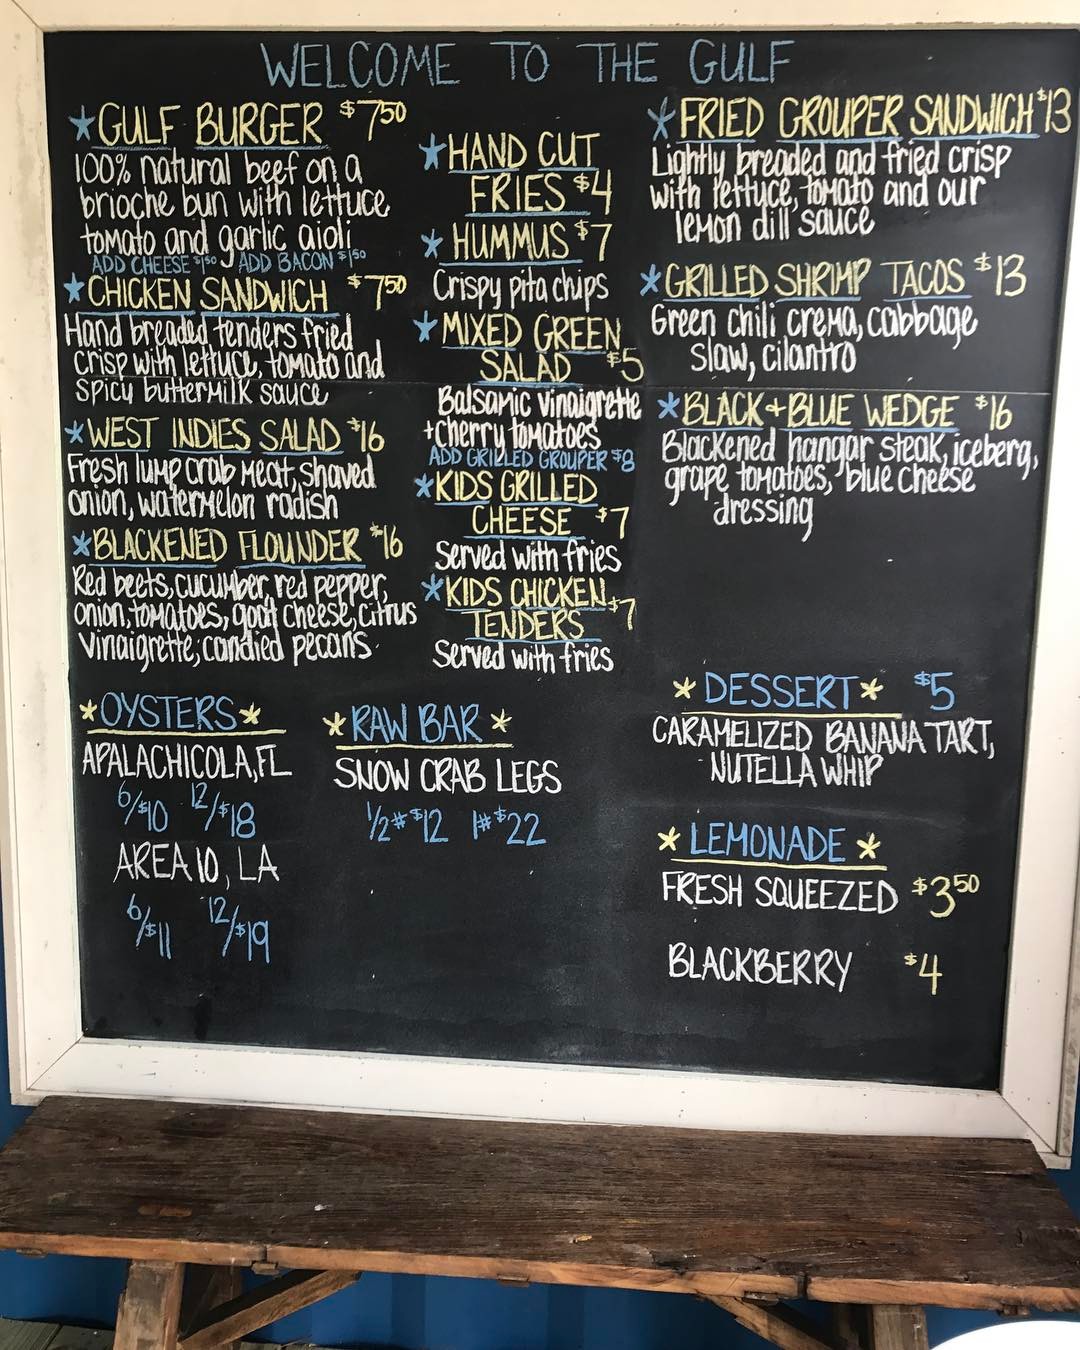 WELCOME TO THE GULF
*GULF BURGER $750
100% natural beef on a
brioche bun with lettuce
tomato and garlic aioli
ADD CHEESE $150 ADD BACON $150
*CHICKEN SANDWICH $750
Hand breaded tenders fried
crisp with lettuce, tomato and
spicy buttermilk sauce
*WEST INDIES SALAD $16
Fresh lump crab meat, shaved
onion, watermelon radish
*BLACKENED FLOUNDER $16
Red beets, cucumber, red pepper,
onion, tomatoes, goat cheese, citrus
vinaigrette, candied pecans
*HAND CUT
FRIES $4
*HUMMUS $7
Crispy pita chips
*MIXED GREEN
SALAD $5
Balsamic vinaigrette
+cherry tomatoes
ADD GRILLED GROUPER $8
*KIDS GRILLED
CHEESE $7
Served with fries
*KIDS CHICKEN
TENDERS $7
Served with fries
*FRIED GROUPER SANDWICH $13
Lightly breaded and fried crisp
with lettuce, tomato and our
lemon dill sauce
*GRILLED SHRIMP TACOS $13
Green chili crema, cabbage
slaw, cilantro
*BLACK+BLUE WEDGE $16
Blackened hangar steak, iceberg,
grape tomatoes, blue cheese
dressing
*OYSTERS*
APALACHICOLA, FL
6/$10 12/$18
AREA 10, LA
6/$11 12/$19
*RAW BAR*
SNOW CRAB LEGS
1/2# $12 1# $22
*DESSERT* $5
CARAMELIZED BANANA TART,
NUTELLA WHIP
*LEMONADE*
FRESH SQUEEZED $350
BLACKBERRY $4